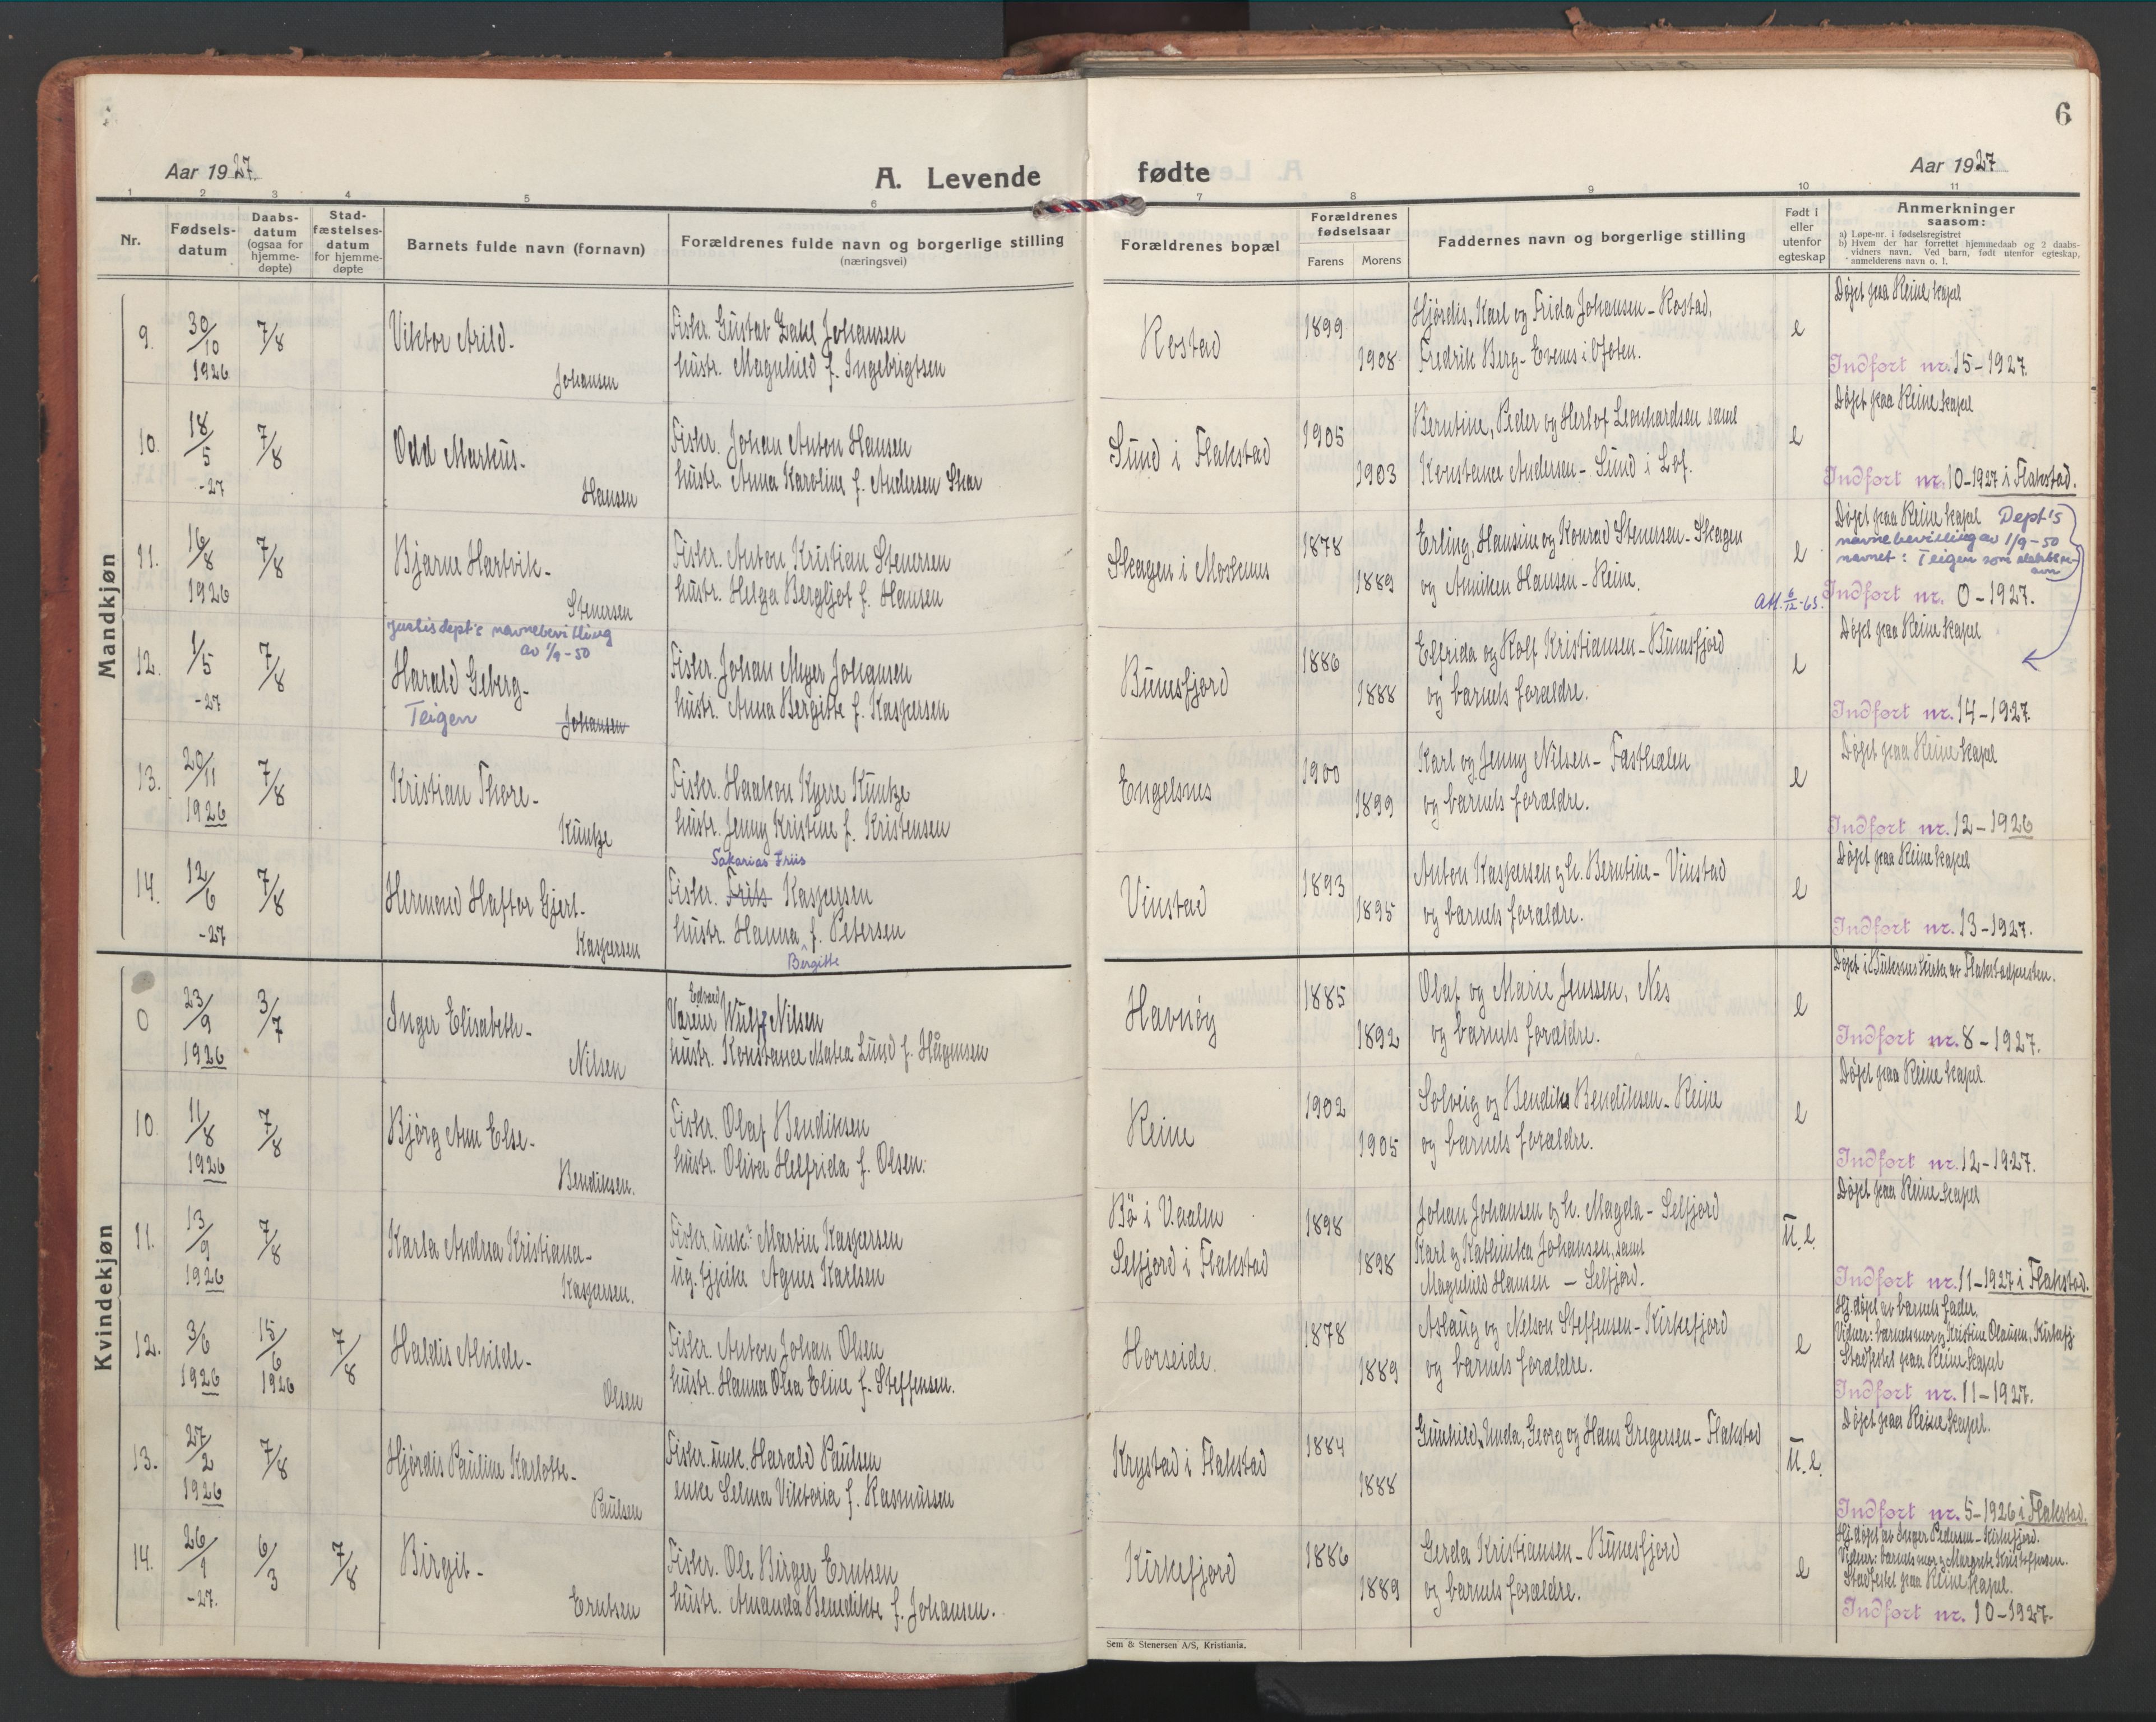 6
Aar 1927.
A. Levende
fødte
Aar 1927
1 2 3 4 5 6 7 8 9 10 11
Nr.
Fødsels-
datum
Daabs-
datum
(ogsaa for
hjemme-
døpte)
Stad-
fæstelses-
datum
for hjemme-
døpte
Barnets fulde navn (fornavn)
Forældrenes fulde navn og borgerlige stilling
(næringsvei)
Forældrenes bopæl
Forældrenes
fødselsaar
Farens Morens
Faddernes navn og borgerlige stilling
Født i
eller
utenfor
egteskap
Anmerkninger
saasom:
a) Løpe-nr. i fødselsregistret
b) Hvem der har forrettet hjemmedaab og 2 daabs-
vidners navn. Ved barn, født utenfor egteskap,
anmelderens navn o. l.
Mandkjøn
9. 30/10 1926 7/8
Viktor Arild-
Johansen
Fisker. Gustav Dahl Johansen
hustr. Magnhild f. Ingebrigtsen
Rostad
1899
1908
Hjørdis, Karl og Frida Johansen - Rostad,
Fredrik Berg - Evenes i Ofoten.
e
Døpt paa Reine kapel
Indført nr. 15-1927.
10. 18/5 -27 7/8
Odd Markus-
Hansen
Fiskr. Johan Anton Hansen
hustr. Anna Karoline f. Andersen Skar
Sund i Flakstad
1905
1903
Berntine, Peder og Herlof Leonhardsen samt
Konstance Andersen - Sund i Lof.
e
Døpt paa Reine kapel
Indført nr. 10-1927 i Flakstad.
11. 16/8 1926 7/8
Bjarne Hartvik-
Stenersen
Fiskr. Anton Kristian Stenersen
hustr. Helga Bergljot f. Hansen
Skagen i Moskenes
1878
1889
Erling, Hansine og Konrad Stenersen - Skagen
og Anniken Hansen - Reine.
e
Døpt paa Reine kapel
Dept's
navnebevilling av 1/9-50
navnet: Teigen som slektsnavn
Att. 6/12-63.
Indført nr. 0-1927.
12. 1/5 -27 7/8
Justisdept's navnebevilling
av 1/9-50
Harald Geberg-
Teigen Johansen
Fiskr. Johan Meyer Johansen
hustr. Anna Bergitte f. Kaspersen
Bunesfjord
1886
1888
Elfrida og Rolf Kristiansen - Bunesfjord
og barnets forældre.
e
Døpt paa Reine kapel
Indført nr. 14-1927.
13. 20/11 1926 7/8
Kristian Thore-
Kuntze
Fiskr. Haakon Kyrre Kuntze
hustr. Jenny Kristine f. Kristensen
Engelsnes
1900
1899
Karl og Jenny Nilsen - Fasthælen
og barnets forældre.
e
Døpt paa Reine kapel
Indført nr. 12-1926
14. 12/6 -27 7/8
Hermond Haftor Gjert-
Kaspersen
Sakarias Friis
Fiskr. Frits Kaspersen
hustr. Hanna f. Petersen
Bergitte
Vinstad
1893
1895
Anton Kaspersen og h. Berntine - Vinstad
og barnets forældre.
e
Døpt paa Reine kapel
Indført nr. 13-1927.
Kvindekjøn
0 23/9 1926 3/7
Inger Elisabeth-
Nilsen
Edvard
Vareier Wulf Nilsen
hustr. Konstance Matea Lund f. Hågensen
Havnøy
1885
1892
Olaf og Marie Jenssen, Nes
og barnets forældre.
e
Døpt i Buksnes kirke av Flakstadpresten.
Indført nr. 8-1927.
10. 11/8 1926 7/8
Bjørg Ann Else-
Bendiksen.
Fiskr. Olaf Bendiksen
hustr. Oliva Helfrida f. Olsen.
Reine
1902
1905
Solveig og Bendiks Bendiksen - Reine
og barnets forældre.
e
Døpt paa Reine kapel.
Indført nr. 12-1927.
11. 13/9 1926 7/8
Karla Andrea Kristiana-
Kaspersen.
Fiskr, unk. Martin Kaspersen
ug. pike Agnes Karlsen
Bø i V.aalen
Selfjord i Flakstad
1898
1898
Johan Johansen og h. Magda - Selfjord
Karl og Kathinka Johansen, samt
Magnhild Hansen - Selfjord.
U.e.
Døpt paa Reine kapel
Indført nr. 11-1927 i Flakstad.
12. 3/6 1926 15/6 1926 7/8
Haldis Alvilde-
Olsen
Fiskr. Anton Johan Olsen
hustr. Hanna Olea Eline f. Steffensen.
Horseide.
1878
1889
Aslaug og Nelson Steffensen - Kirkefjord
og barnets forældre.
e
Hj. døpt av barnets fader.
Vidner: barnets mor og Kristine Olausen, Kirkefj.
Stadfestet paa Reine kapel
Indført nr. 11-1927.
13. 27/2 1926 7/8
Hjørdis Pauline Karlotte-
Paulsen
Fiskr. unk. Harald Paulsen
enke Selma Viktoria f. Rasmussen
Krystad i Flakstad
1884
1888
Gunhild, Unda, Georg og Hans Gregersen - Flakstad
U.e.
Døpt paa Reine kapel.
Indført nr. 5-1926 i Flakstad.
14. 26/1 -27. 6/3 7/8
Birgit-
Erntsen
Fiskr. Ole Birger Erntsen
hustr. Amanda Benedikte f. Johansen.
Kirkefjord
1886
1889
Gerda Kristiansen - Bunesfjord
og barnets forældre.
e
Hj. døpt av Inger Pedersen - Kirkefjord.
Vidner: barnets mor og Margrete Kristoffersen.
Stadfestet paa Reine kapel.
Indført nr. 10-1927.
Sem & Stenersen A/S, Kristiania.